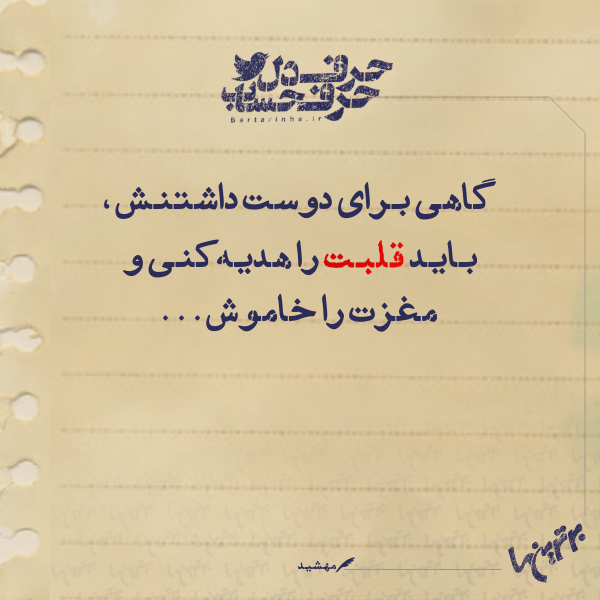 حرف دل
حرف حساب
Bartarinha.ir
گاهی برای دوست داشتنش،
باید قلبت را هدیه کنی و
مغزت را خاموش...
مهشید
برترین‌ها